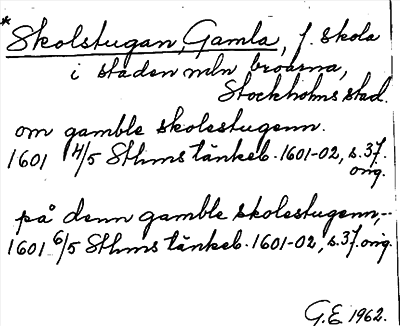 * Skolstugan, Gamla, f. skola
i staden mln broarna,
Stockholms stad.
om gamble skolestugenn.
1601 4/5 Sthms tänkeb. 1601-02, s. 37.
orig.
på denn gamble skolestugenn,-
1601 6/5 Sthms tänkeb. 1601-02, s. 37. orig.
G.E 1962.